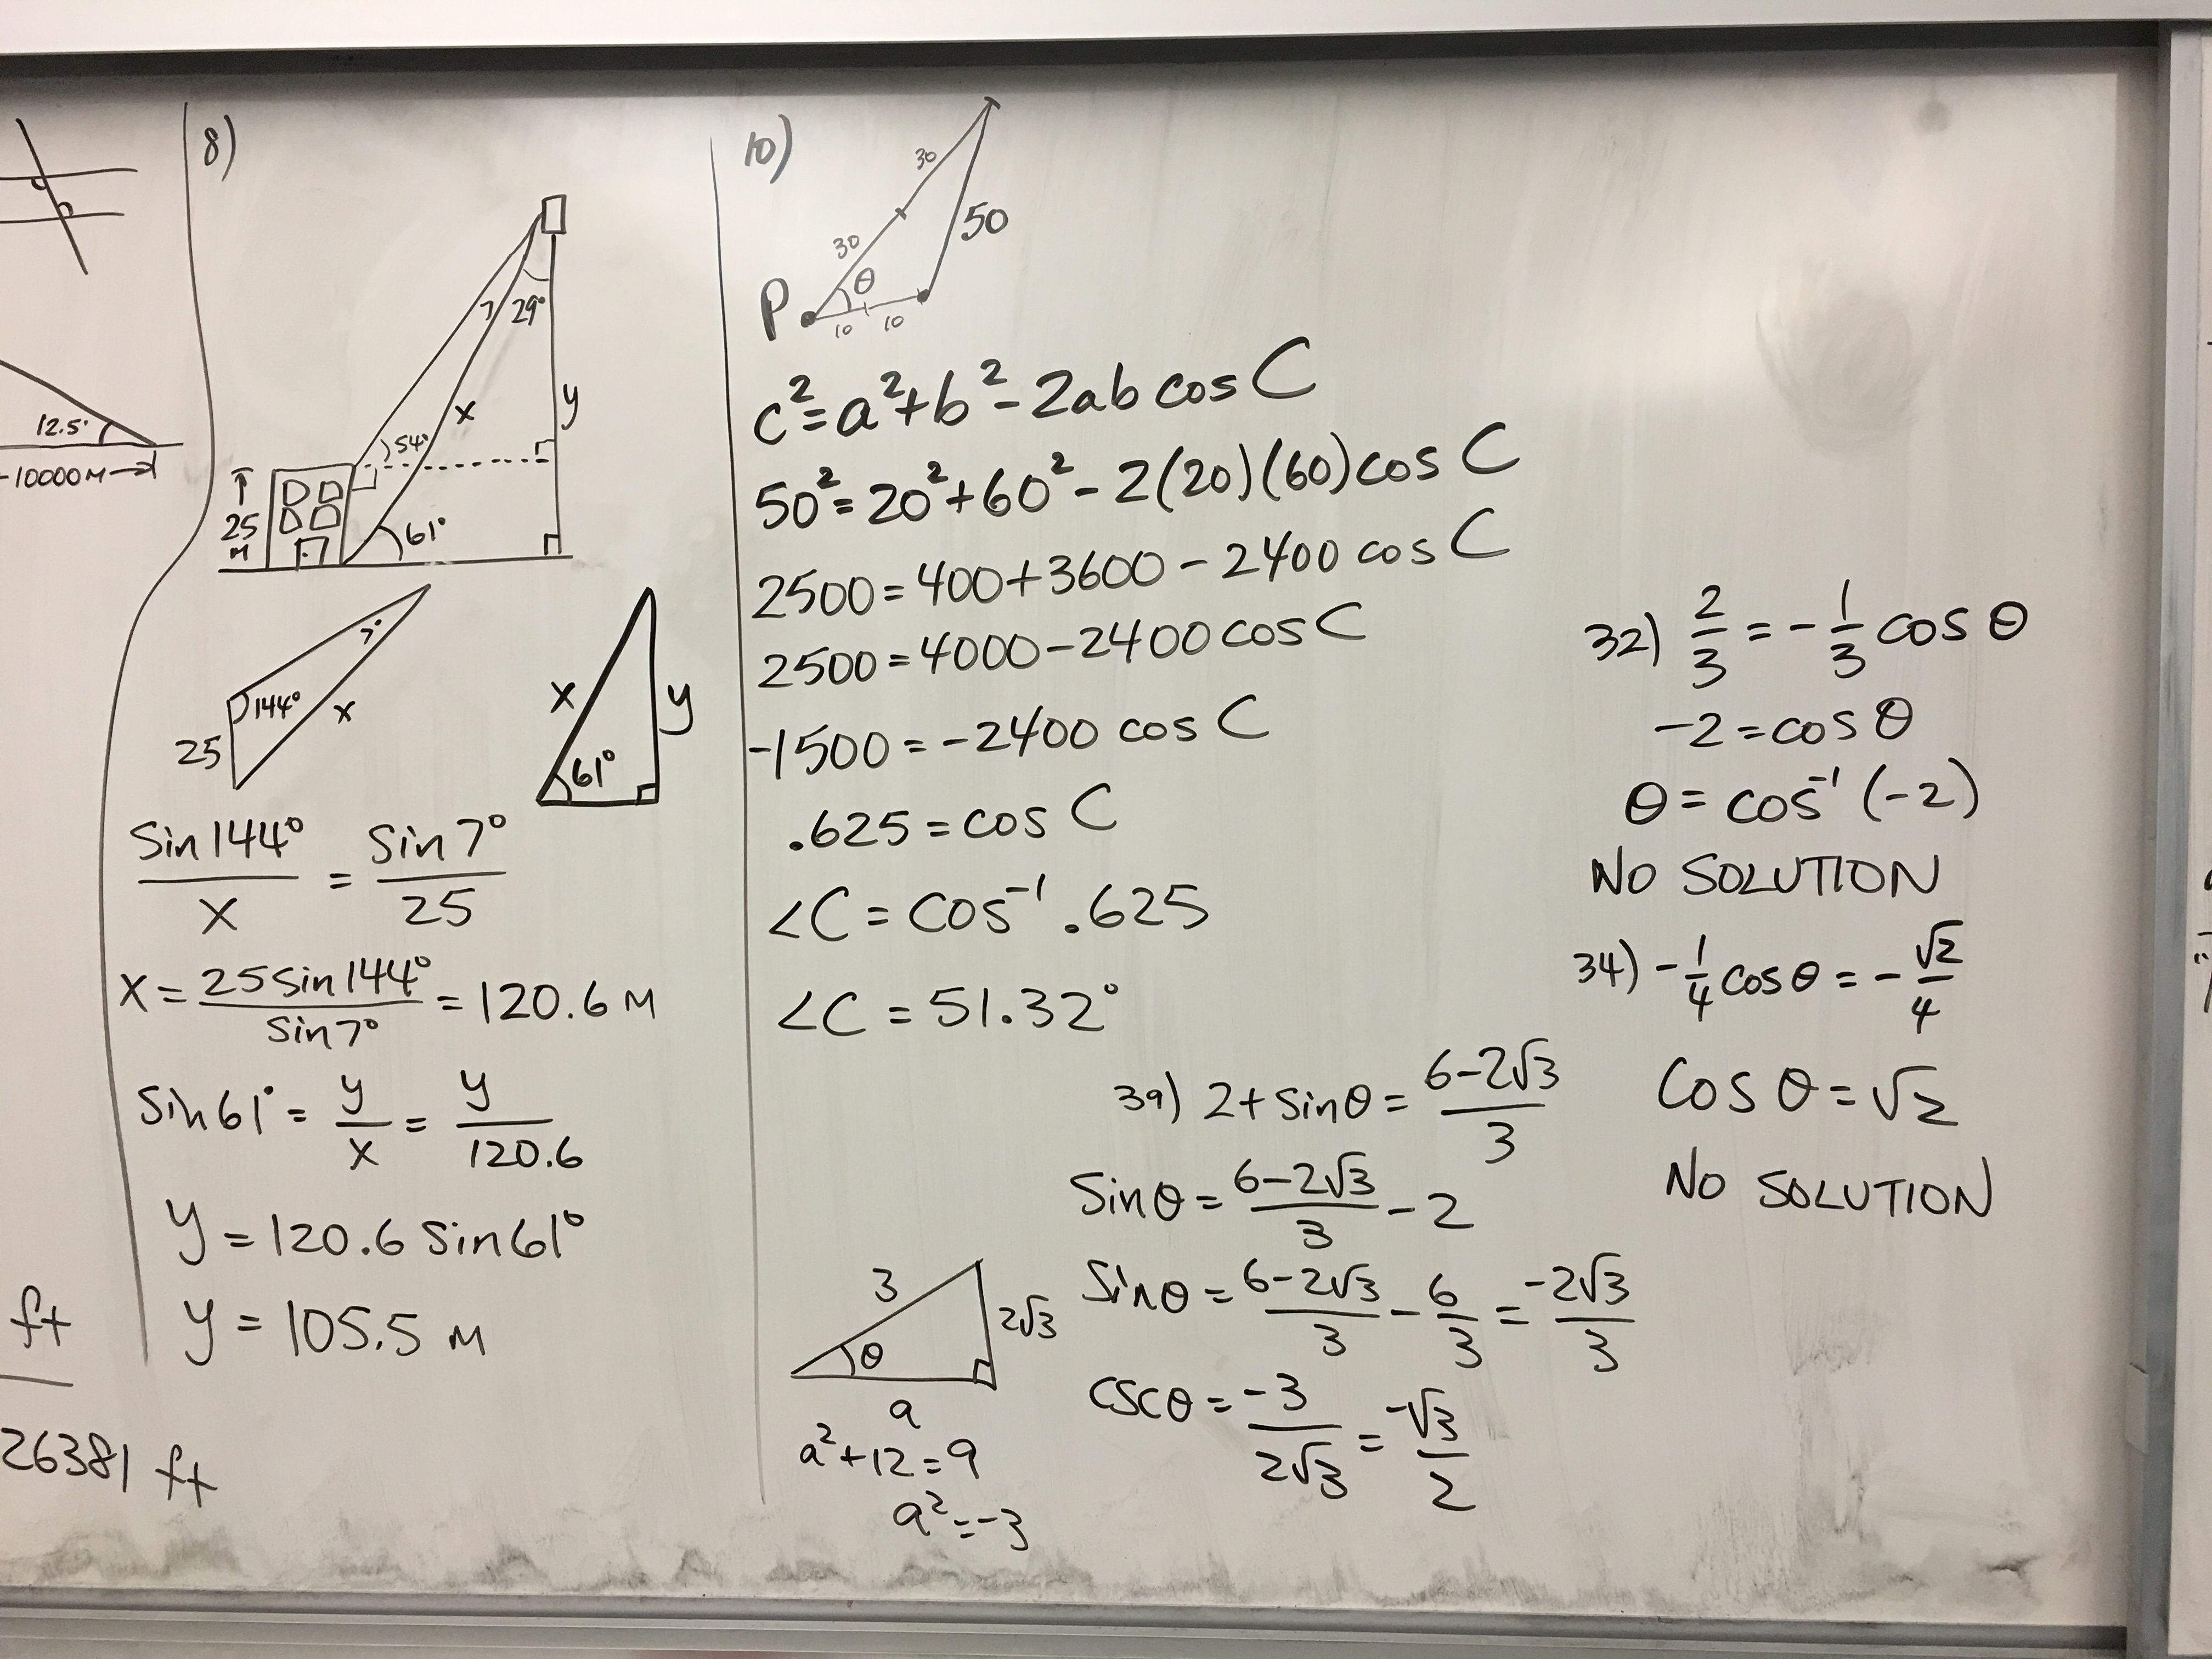 12.5°
-10000M→
ft
26381 ft
8)
7
29°
x
y
54°
↑
25
M
61°
7°
144°
x
25
x
y
61°
Sin144°/x = Sin7°/25
x = 25Sin144°/Sin7° = 120.6 M
Sin61° = y/x = y/120.6
y = 120.6 Sin61°
y = 105.5 M
10)
30
30
50
P
θ
10 10
c²=a²+b²-2ab cos C
50²=20²+60²-2(20)(60)cos C
2500=400+3600-2400 cos C
2500=4000-2400cos C
-1500=-2400 cos C
.625=cos C
∠C=cos⁻¹ .625
∠C=51.32°
39) 2+sinθ = 6-2√3/3
Sinθ = 6-2√3/3 - 2
Sinθ = 6-2√3/3 - 6/3 = -2√3/3
cscθ = -3/2√3 = -√3/2
3
2√3
θ
a
a²+12=9
a²=-3
32) 2/3 = -1/3 cos θ
-2=cos θ
θ=cos⁻¹(-2)
NO SOLUTION
34) -1/4 cos θ = -√2/4
Cos θ=√2
NO SOLUTION